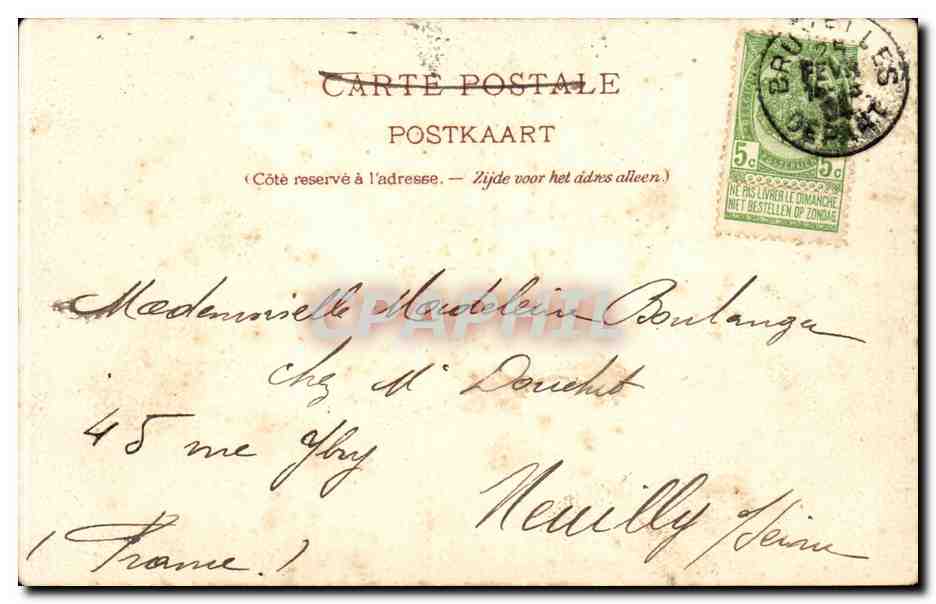 CARTE POSTALE
POSTKAART
(Côté reservé à l'adresse. — Zijde voor het adres alleen.)
BRUXELLES
25
FEVR
DEPART
5c 5c
NE PAS LIVRER LE DIMANCHE
NIET BESTELLEN OP ZONDAG
CPAPHIL
Mademoiselle Madeleine Boulanger
chez Mr Douchet
45 rue Ybry
Neuilly s/Seine
(France)